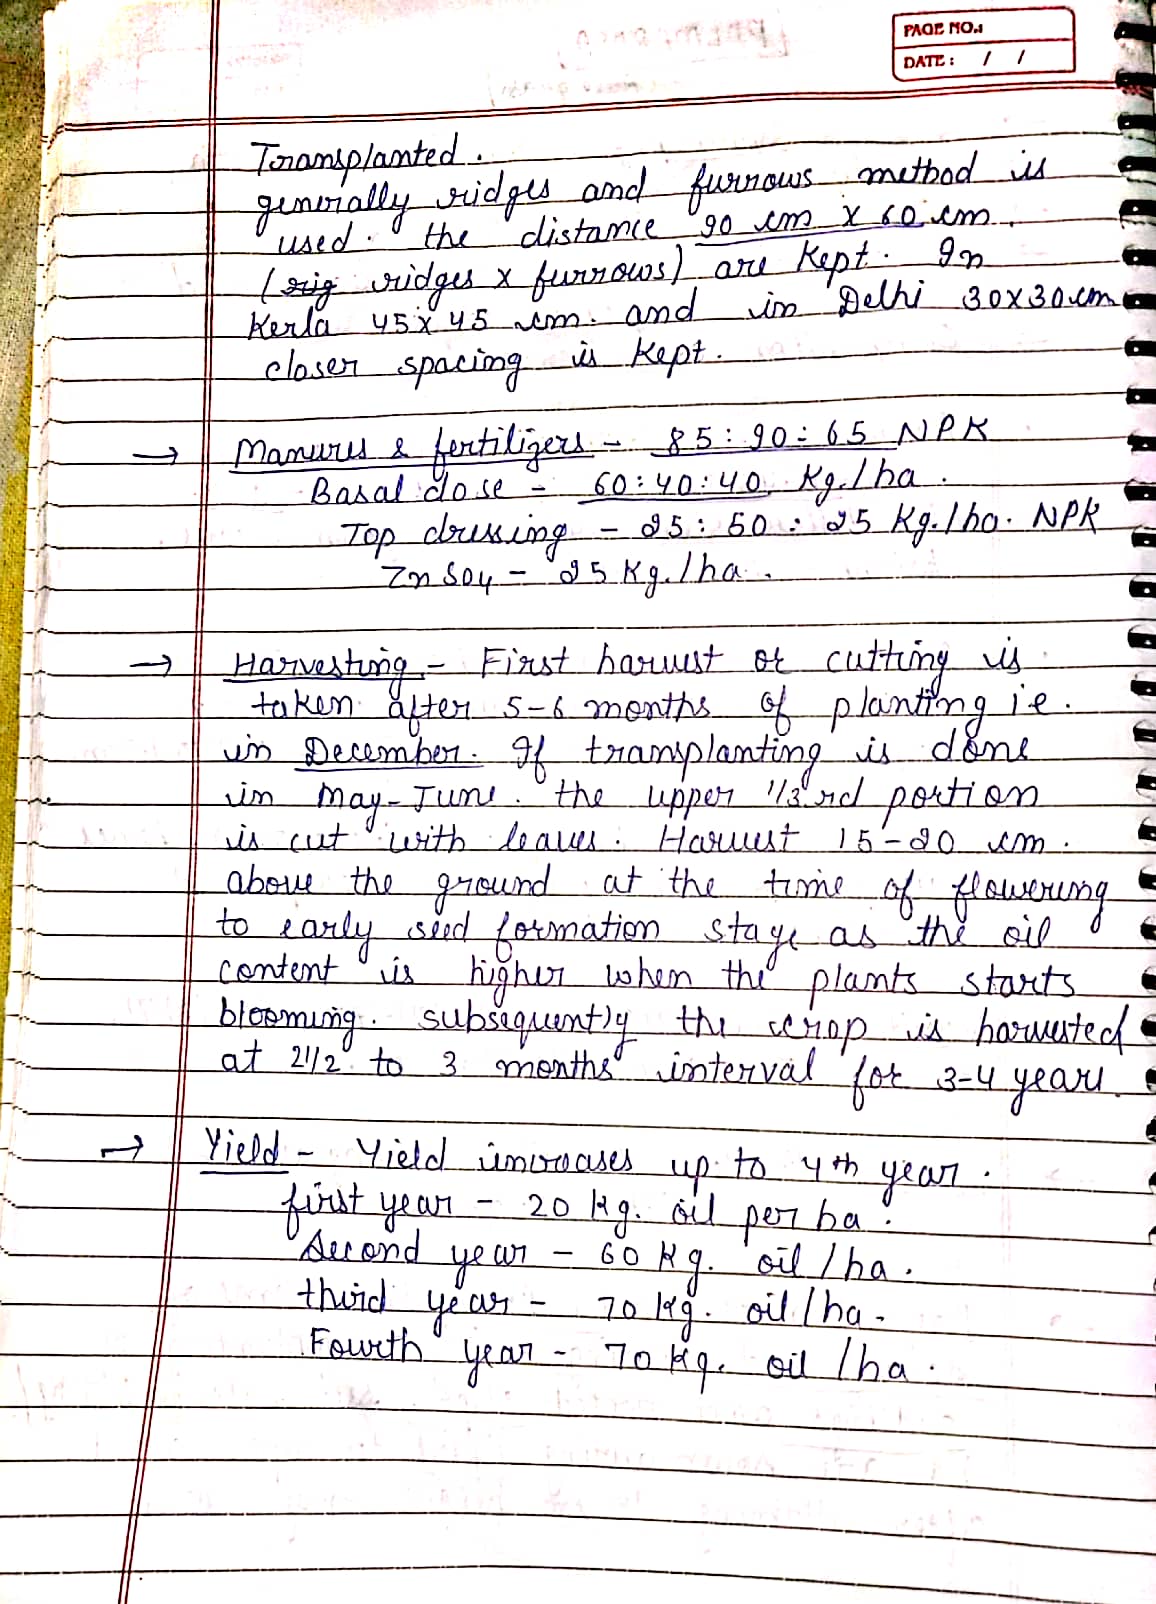 PAGE NO.:
DATE: / /
Transplanted.
generally ridges and furrows method is
used. the distance 90 cm x 60 cm.
(rig ridges x furrows) are kept. In
Kerla 45 x 45 cm. and in Delhi 30x30cm
closer spacing is kept.
→ Manures & fertilizers - 85:90:65 NPK
Basal dose - 60:40:40 Kg./ha.
Top dressing - 25:50:25 Kg./ha. NPK
ZnSO4 - 25 Kg./ha.
→ Harvesting - First harvest or cutting is
taken after 5-6 months of planting i.e.
in December. If transplanting is done
in May-June. the upper 1/3rd portion
is cut with leaves. Harvest 15-20 cm.
above the ground at the time of flowering
to early seed formation stage as the oil
content is higher when the plants starts
blooming. subsequently the crop is harvested
at 2 1/2 to 3 months interval for 3-4 years.
→ Yield - Yield increases up to 4th year.
first year - 20 Kg. oil per ha.
Second year - 60 Kg. oil /ha.
third year - 70 Kg. oil /ha.
Fourth year - 70 Kg. oil /ha.